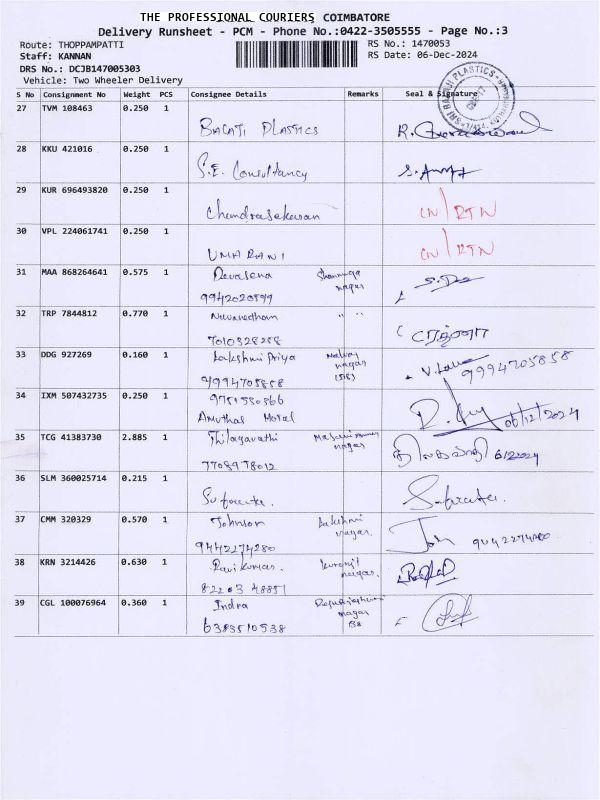 THE PROFESSIONAL COURIERS COIMBATORE
Delivery Runsheet - PCM - Phone No.:0422-3505555 - Page No.:3
Route: THOPPAMPATTI RS No.: 1470053
Staff: KANNAN RS Date: 06-Dec-2024
DRS No.: DCJB147005303
Vehicle: Two Wheeler Delivery
S No Consignment No Weight PCS Consignee Details Remarks Seal & Signature
27 TVM 108463 0.250 1
BAGATI PLASTICS
28 KKU 421016 0.250 1
S.E. Consultancy
29 KUR 696493820 0.250 1
Chandrasekaran CN/RTN
30 VPL 224061741 0.250 1
UMA RANI CN/RTN
31 MAA 868264641 0.575 1 Devasena Shanmuga
nagar
32 TRP 7844812 0.770 1 " "
7010328288
33 DDG 927269 0.160 1 Lakshmi Priya
nagar
4994705858 9994705858
34 IXM 507432735 0.250 1
Amuthas 06/12/2024
35 TCG 41383730 2.885 1 Thilagavathi
nagar
7708978012 திலகவதி 6/2024
36 SLM 360025714 0.215 1
37 CMM 320329 0.570 1 Johnson Lakshmi
nagar.
9442274280
38 KRN 3214426 0.630 1 Ravikumar. Kurinji
nagar.
82203 48851
39 CGL 100076964 0.360 1 Indra
nagar
6383510538